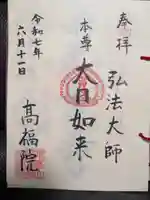 奉拝 弘法大師
本尊 大日如来
令和七年
六月十一日
高福院